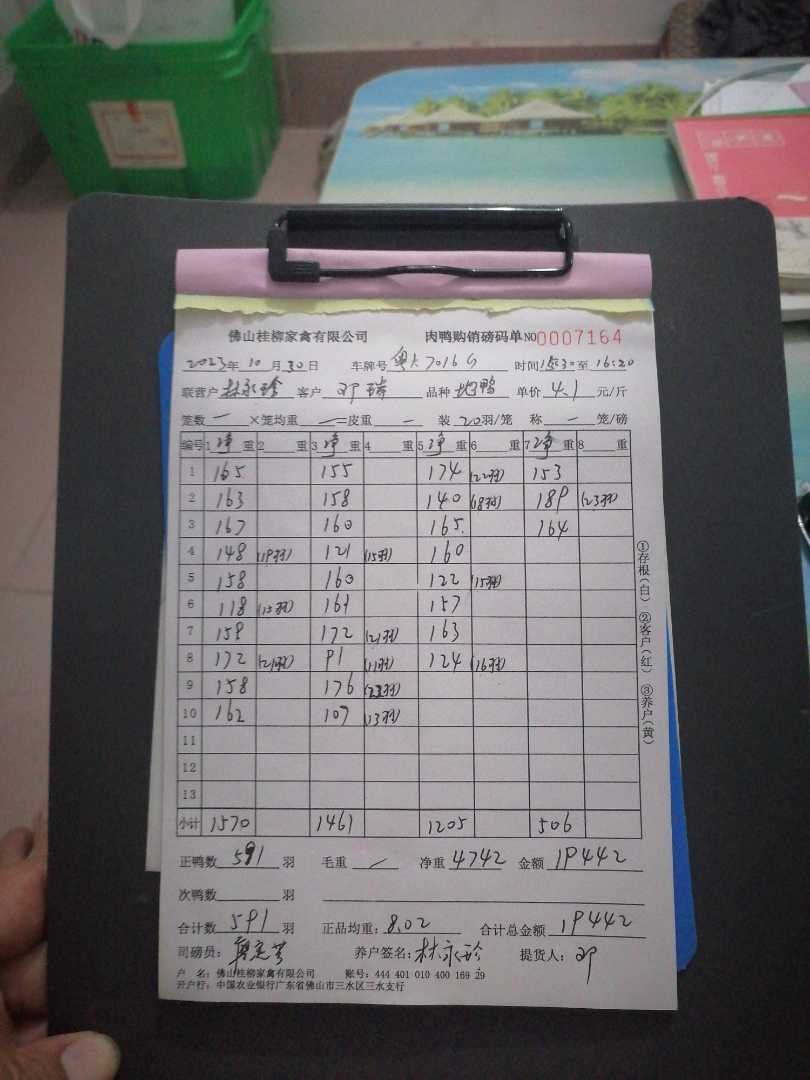 佛山桂柳家禽有限公司 肉鸭购销磅码单 NO 0007164
2023年 10月 30日 车牌号 粤A7016G 时间 15:30至 16:20
联营户 林永珍 客户 邓瑞 品种 地鸭 单价 4.1 元/斤
笼数 一 ×笼均重 一 =皮重 一 装 20羽/笼 称 一 笼/磅
编号 1 净 重 2 重 3 净 重 4 重 5 净 重 6 重 7 净 重 8 重
1 165 155 174 (22羽) 153
2 163 158 140 (18羽) 189 (23羽)
3 167 160 165 164
4 148 (19羽) 121 (15羽) 160
5 158 160 122 (15羽)
6 118 (15羽) 161 157
7 159 172 (21羽) 163
8 172 (21羽) 91 (11羽) 124 (16羽)
9 158 176 (22羽)
10 162 107 (13羽)
11
12
13
小计 1570 1461 1205 506
①存根(白) ②客户(红) ③养户(黄)
正鸭数 591 羽 毛重 一 净重 4742 金额 19442
次鸭数 羽
合计数 591 羽 正品均重: 8.02 合计总金额 19442
司磅员: 养户签名: 林永珍 提货人: 邓
户 名: 佛山桂柳家禽有限公司 账号: 444 401 010 400 169 29
开户行: 中国农业银行广东省佛山市三水区三水支行